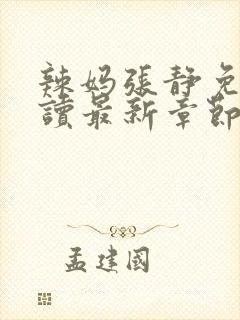 辣妈張静免
讀最新章節
孟建國